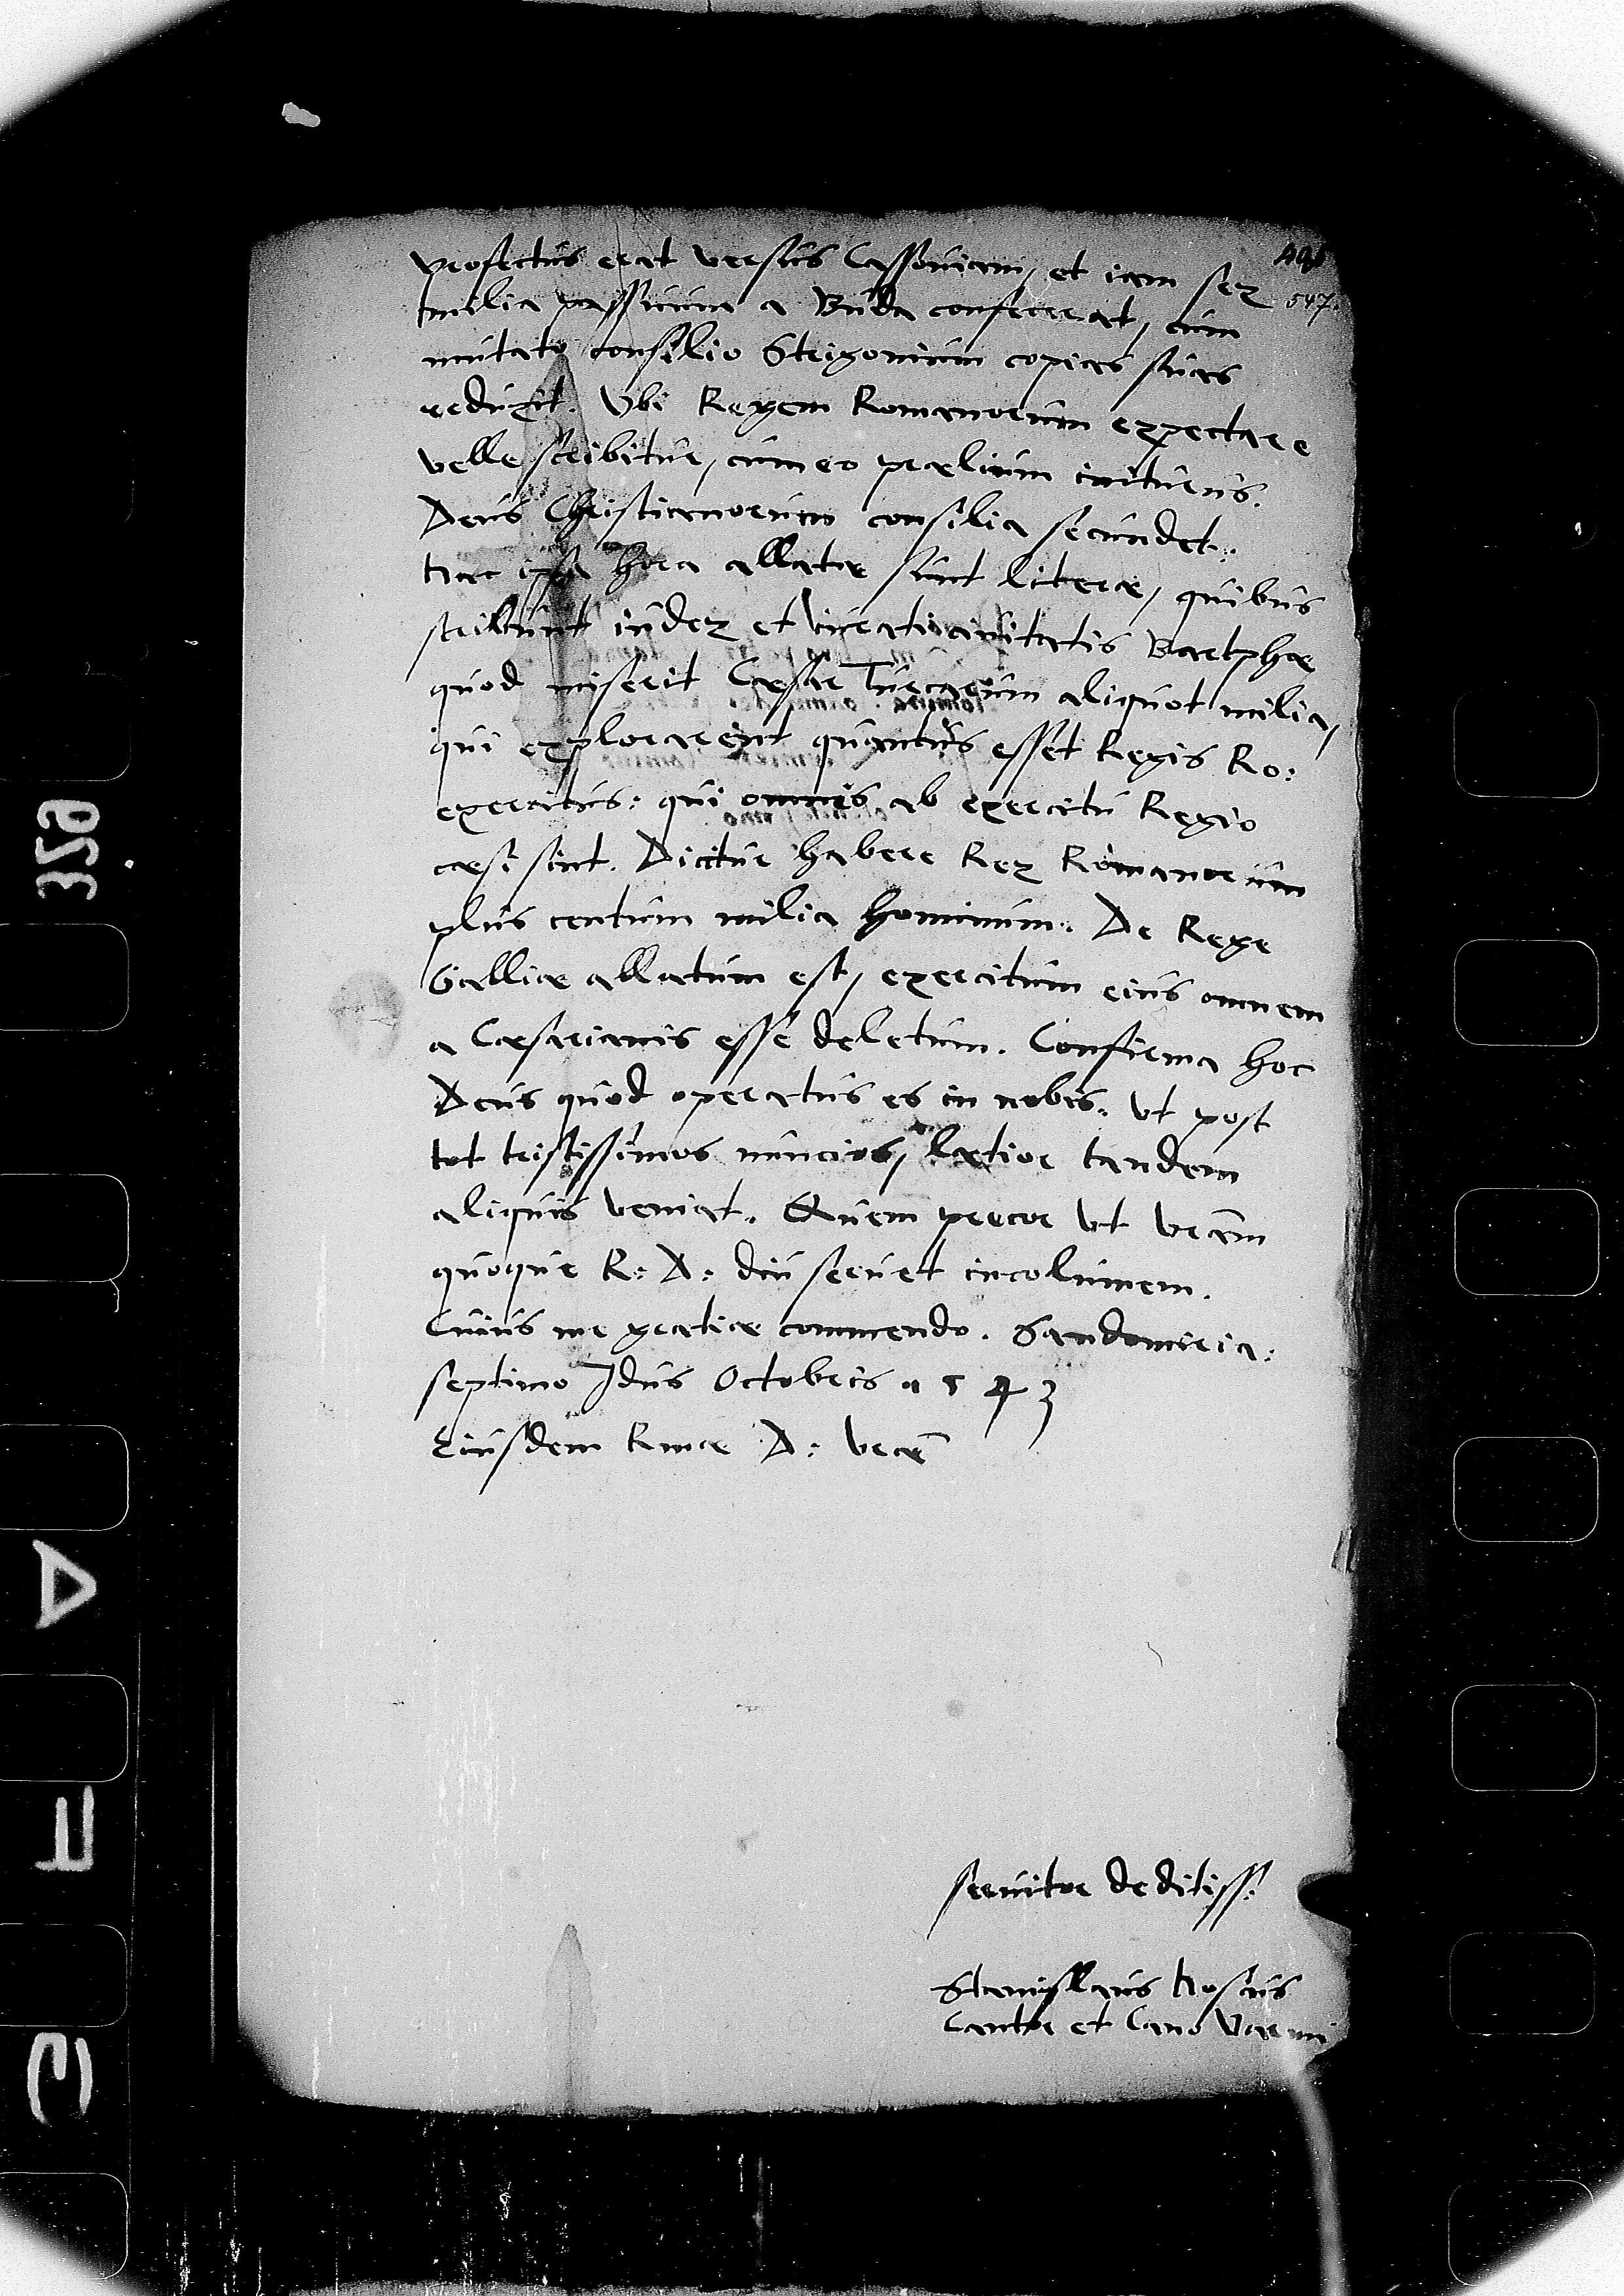 profectus erat versus Cassoviam, et iam sex
547.
milia passuum a Buda confecerat, cum
mutato consilio Strigonium copias suas
reduxit. Vbi Regem Romanorum expectare
velle scribitur, cum eo prælium initurus.
Deus Christianorum consilia secundet.
Hac ipsa hora allatæ sunt literæ, quibus
scribunt iudex et iurati civitatis Bartphæ
quod miserit Cæsar Turcarum aliquot milia,
qui explorarent quantus esset Regis Ro:
exercitus: qui omnes ab exercitu Regio
cæsi sint. Dicitur habere Rex Romanorum
plus centum milia hominum. De Rege
Galliæ allatum est, exercitum eius omnem
a Cæsarianis esse deletum. Confirma hoc
Deus quod operatus es in nobis. vt post
tot tristissimos nuncios, lætior tandem
aliquis veniat. Quem precor vt vram
quoque R: D: diu servet incolumem.
Cuius me gratiæ commendo. Sandomiria:
septimo Idus Octobris 1543
Eiusdem Rmæ D: vræ
servitor deditiss:
Stanislaus Hosius
Cantor et Cano Varmi
329
A
F